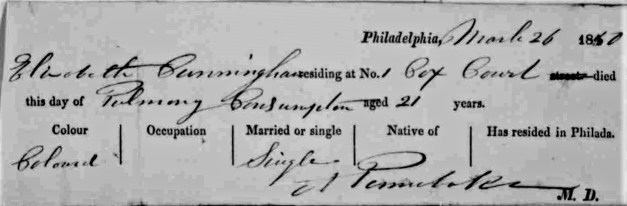 Philadelphia, March 26 1850
Elizabeth Cunningham residing at No. 1 Cox Court street died
this day of Pulmony Consumption aged 21 years.
Colour Occupation Married or single Native of Has resided in Philada.
Coloured Single
M. D.